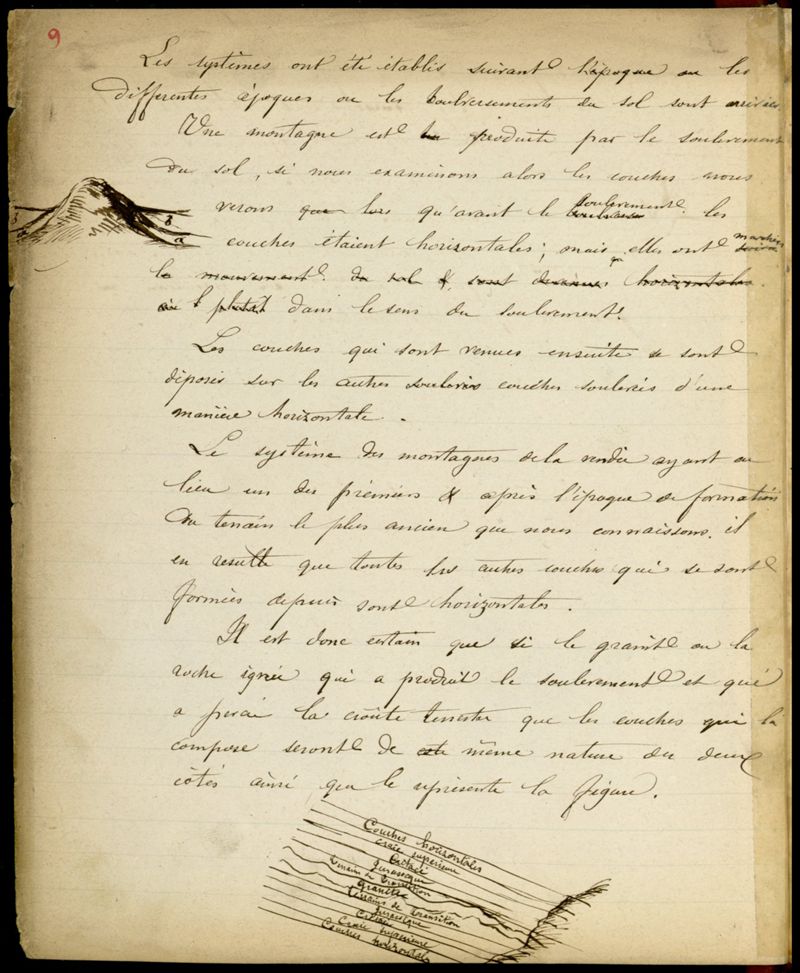 9
Les systèmes ont été établis suivant l'époque ou les
differentes époques ou les bouleversements du sol sont arrivés
Une montagne est la produite par le soulevement
du sol, si nous examinons alors les couches nous
verons que lors qu'avant le soulevement les
couches étaient horizontales; mais qu'elles ont
le mouvement du sol & sont devenues horizontales
plutot dans le sens du soulevement.
Les couches qui sont venues ensuite se sont
déposés sur les autres couches soulevés d'une
manière horizontale.
Le système des montagnes de la vendée ayant eu
lieu un des prémiers & après l'époque de formation
du terrain le plus ancien que nous connaissons. il
en resulte que toutes les autres couches qui se sont
formées depuis sont horizontales.
Il est donc certain que si le granit ou la
roche ignée qui a produit le soulevement et qui
a percé la croûte terrestre que les couches qui la
compose seront de même nature des deux
côtés ainsi que le représente la figure.
Couches horizontales
Craie superieure
Crétacé
Jurassique
Terrains de Transition
Granite
Terrains de Transition
Jurassique
Crétacé
Craie superieure
Couches horizontales